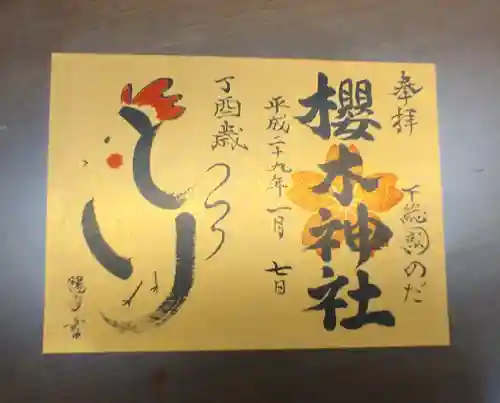 奉拝
下総國のだ
櫻木神社
平成二十九年一月七日
丁酉歳
とり